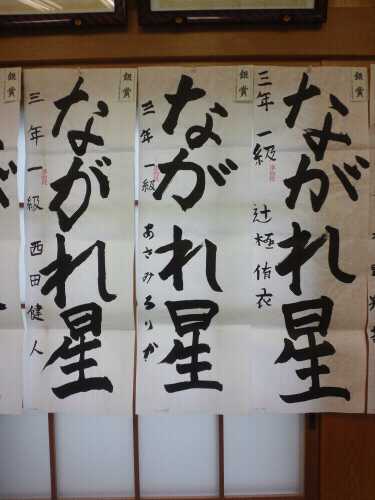 銀賞
ながれ星
三年 一級 辻極 侑衣
銀賞
ながれ星
三年 一級 あさみるりか
銀賞
ながれ星
三年 一級 西田健人
銀賞